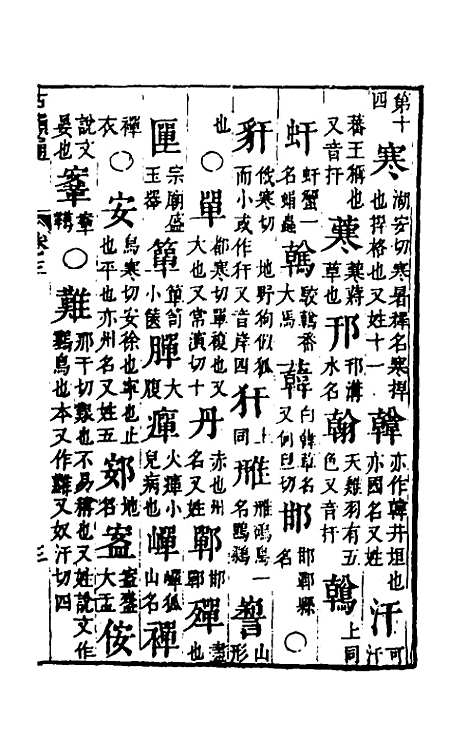 第十四 寒 湖安切寒暑釋名寒捍也捍格也又姓十一 韓 亦作韓井垣也亦國名又姓 汗 可汗
蕃王稱也又音扞 寒蔣草也 邗 邗溝水名 翰 天雞羽有五色又音扞 鶾 上同
虷 虷蟹一名蛣蟲 大馬 白草名又何旦切 邯 邯鄲縣名 ○
豻 俄寒切 地野狗似狐而小或作犴又音岸四 犴 上同 雃 雃鳥一名 山形
也 ○ 單 都寒切單複也又大也又常演切十 丹 赤也州名又姓 鄲 邯鄲 殫 盡也
匰 宗廟盛玉器 簞 簞笥小篋 大腹 癉 火癉小兒病也 狐山名 襌
襌衣 ○ 安 烏寒切安徐也寧也止也平也亦州名又姓五 地名 大盂 侒
說文晏也 ○ 難 那干切艱也不易稱也又姓說文作鷬鳥也本又作難又奴汗切四
古韻通 卷三 三